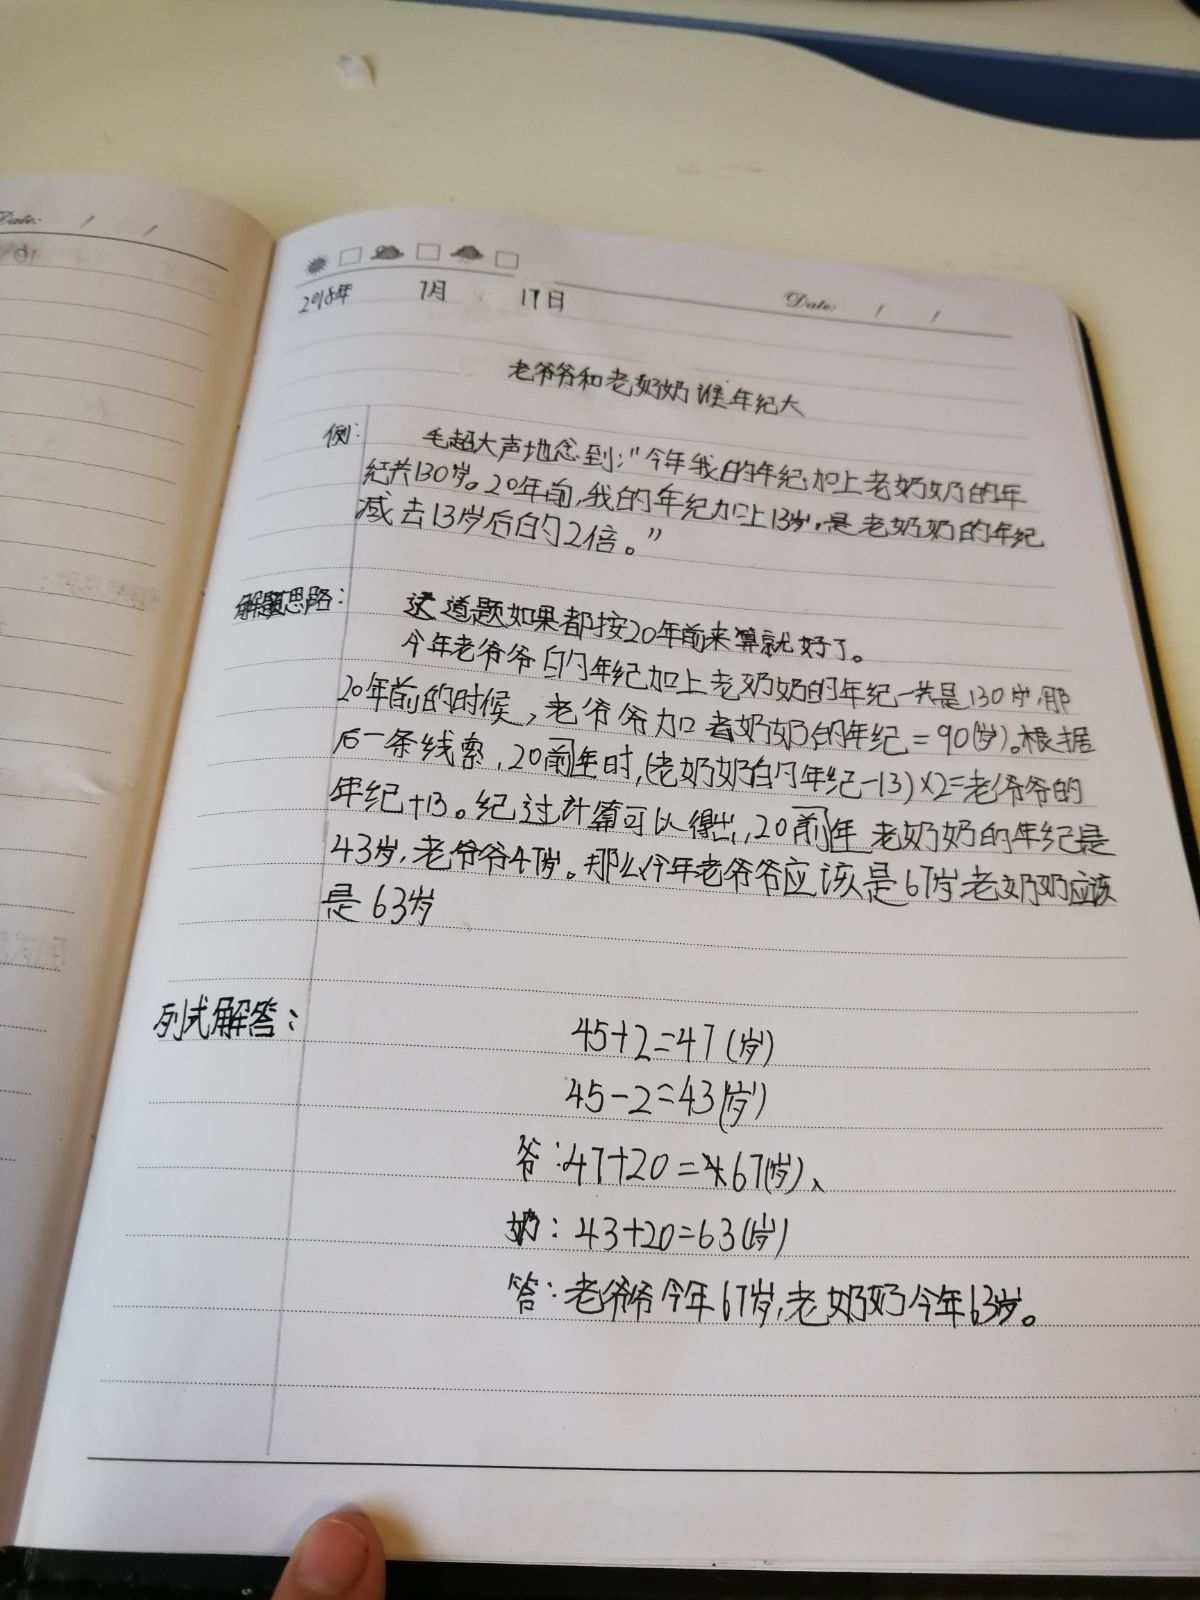 Date: / /
Date: / /
2018年 7月 17日
老爷爷和老奶奶谁年纪大
例: 毛超大声地念到:"今年我的年纪加上老奶奶的年
纪共130岁。20年前,我的年纪加上13岁,是老奶奶的年纪
减去13岁后的2倍。"
解题思路: 这道题如果都按20年前来算就好了。
今年老爷爷的年纪加上老奶奶的年纪一共是130岁,那
20年前的时候,老爷爷加老奶奶的年纪=90(岁)。根据
后一条线索,20前年时,(老奶奶的年纪-13)×2=老爷爷的
年纪+13。纪过计算可以得出,20前年老奶奶的年纪是
43岁,老爷爷47岁。那么今年老爷爷应该是67岁老奶奶应该
是63岁
列式解答: 45+2=47(岁)
45-2=43(岁)
爷:47+20=67(岁)、
奶:43+20=63(岁)
答:老爷爷今年67岁,老奶奶今年63岁。